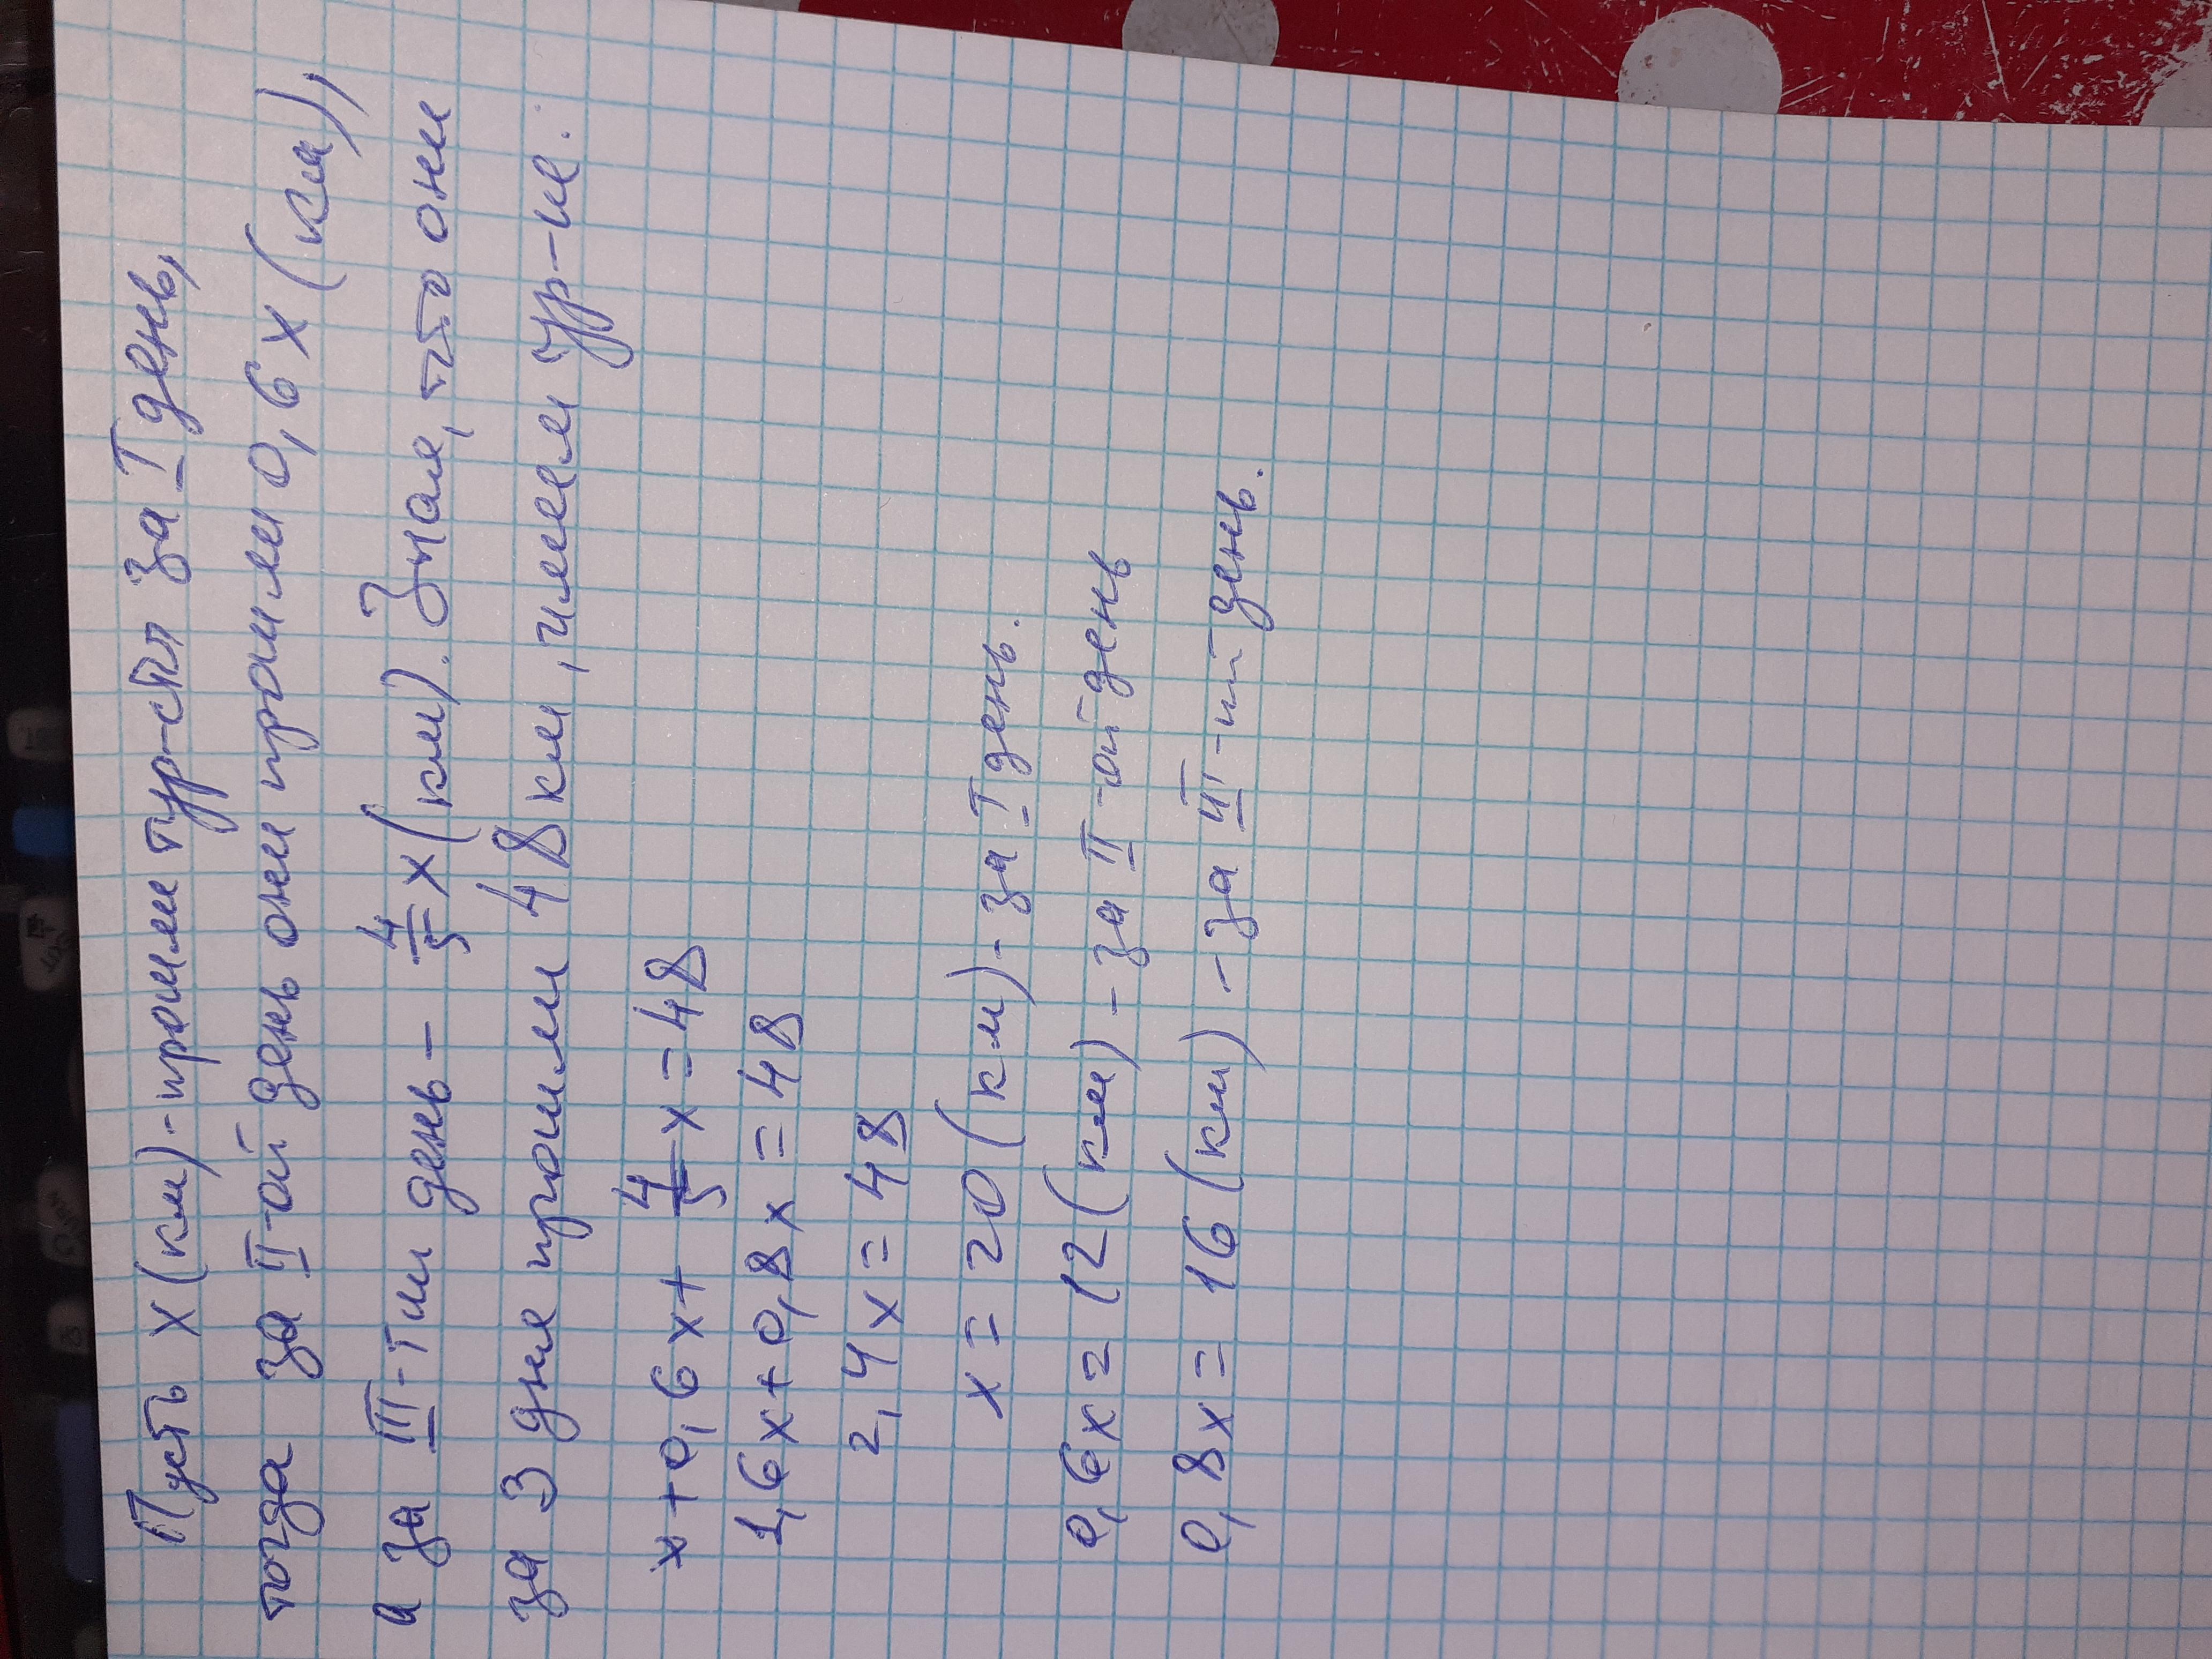 Пусть x (км) - прошли тур-сты за I день,
тогда за II-ой день они прошли 0,6 x (км),
а за III-тий день - 4/5 x (км). Зная, что они
за 3 дня прошли 48 км, имеем ур-ие:
x + 0,6 x + 4/5 x = 48
1,6 x + 0,8 x = 48
2,4 x = 48
x = 20 (км) - за I день.
0,6 x = 12 (км) - за II-ой день
0,8 x = 16 (км) - за III-ий день.